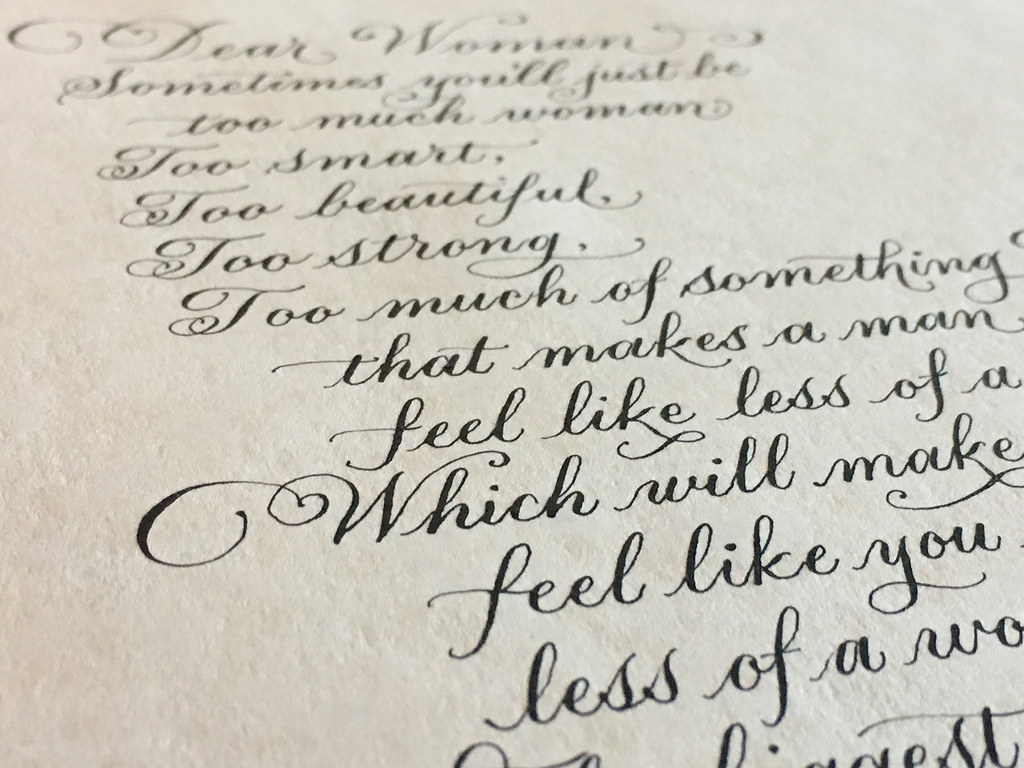 Dear Woman
Sometimes you'll just be
too much woman
Too smart.
Too beautiful.
Too strong.
Too much of something
that makes a man
feel like less of a
Which will make
feel like you
less of a wo
biggest